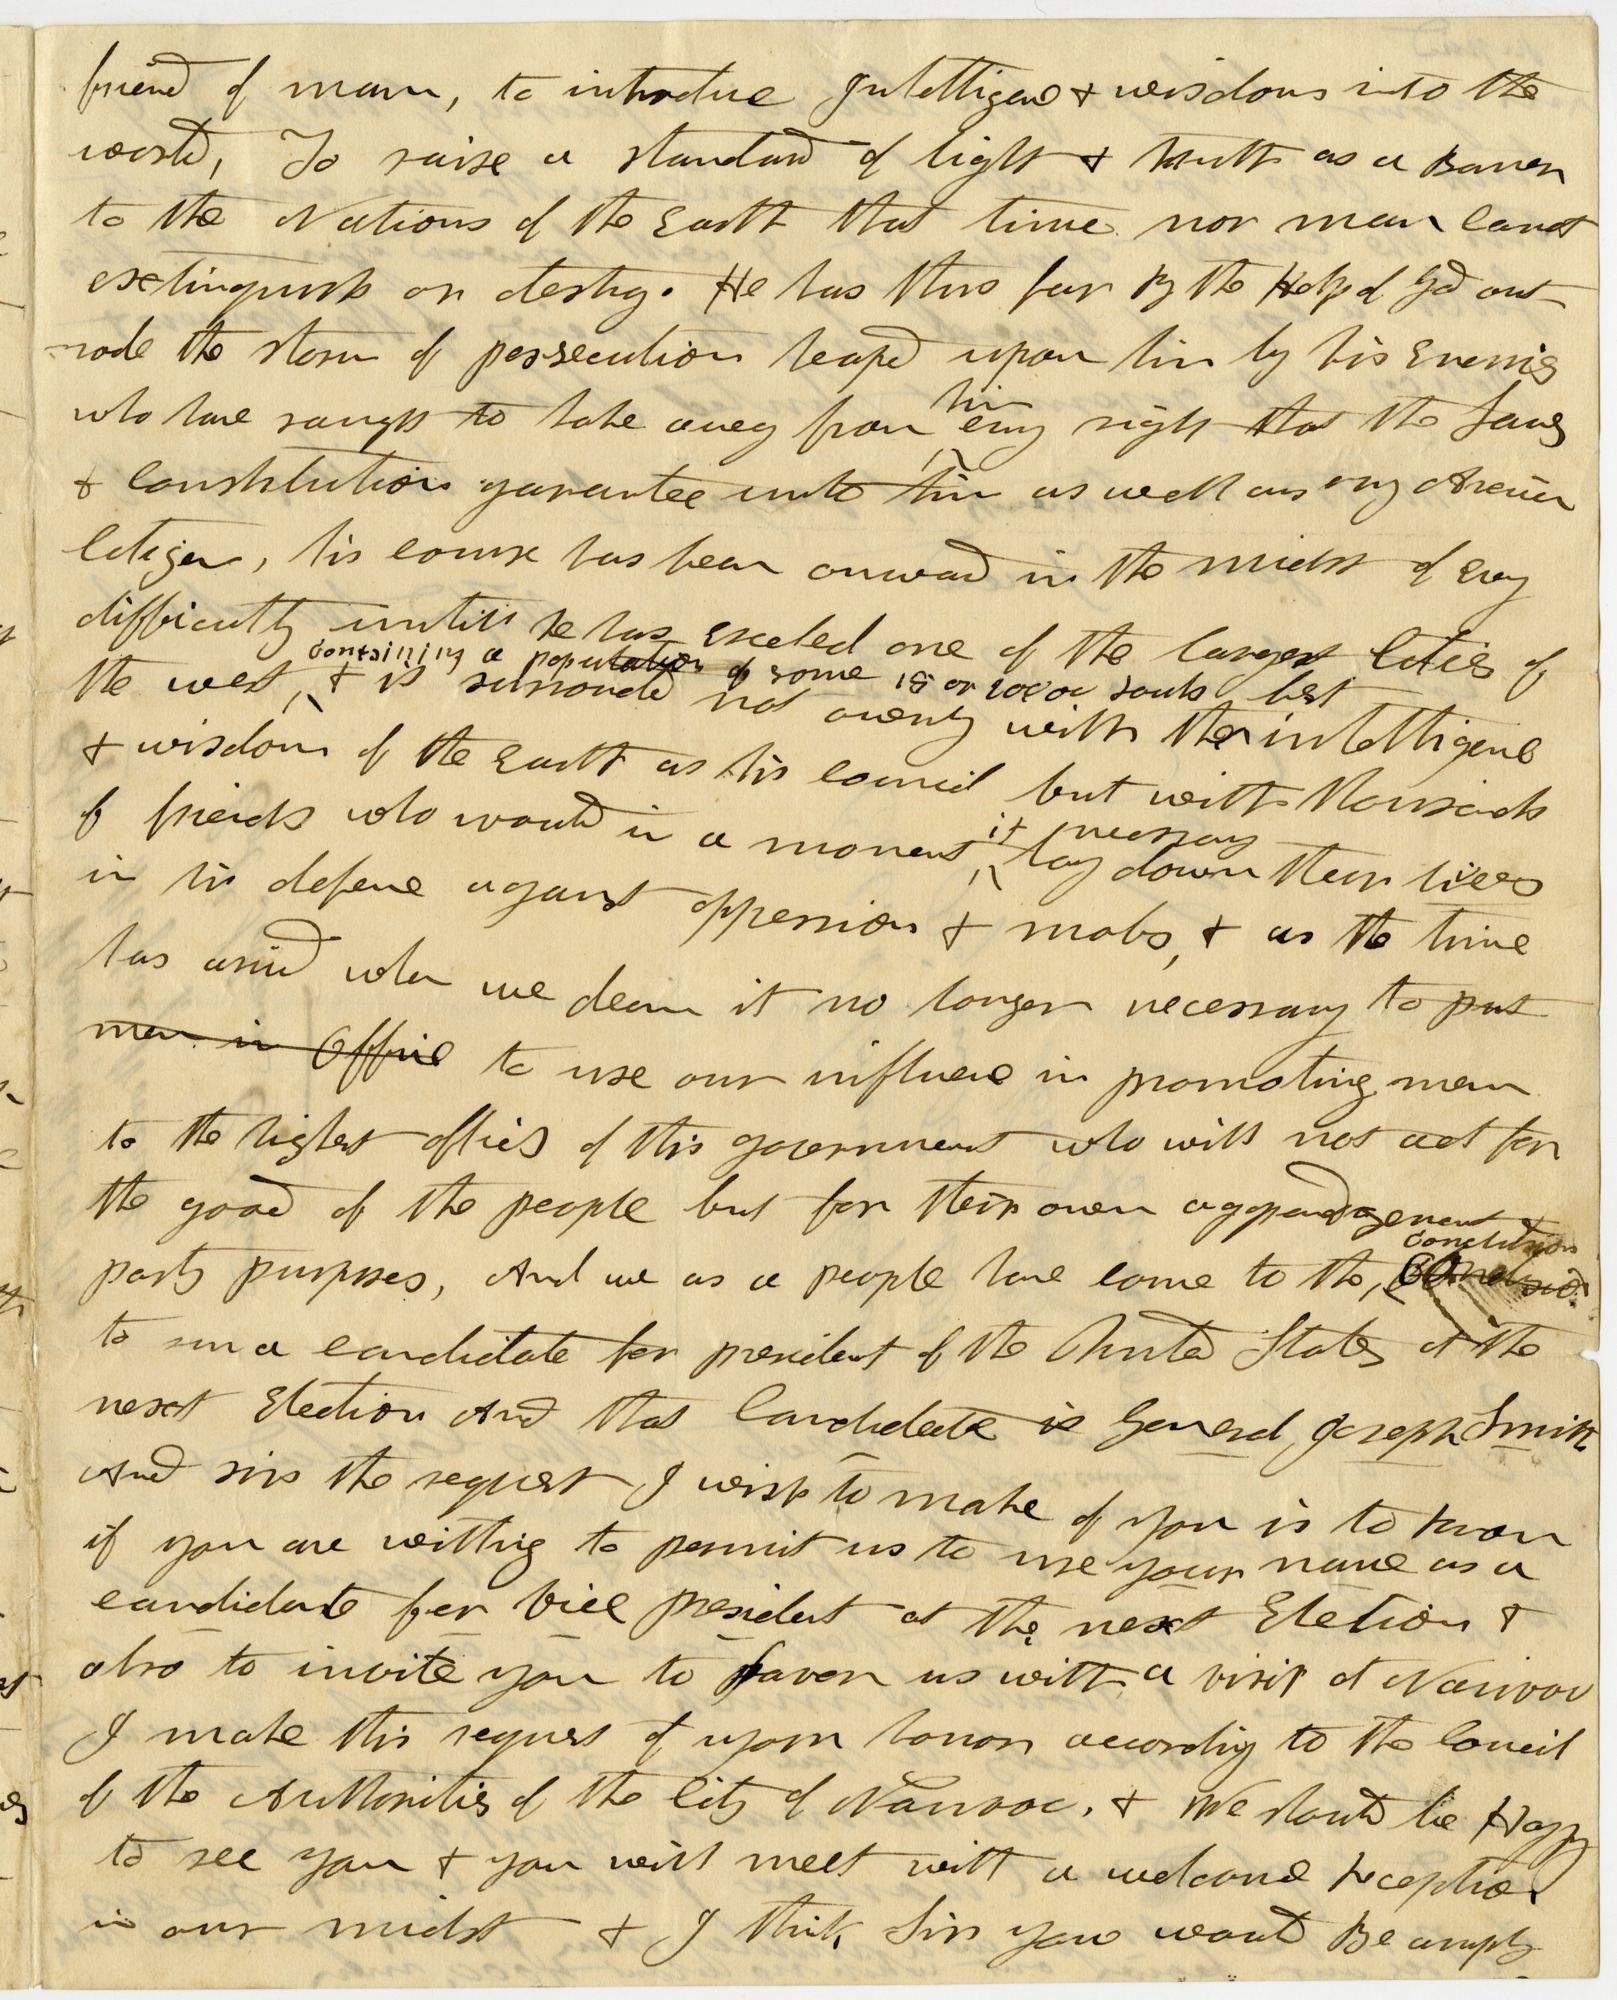 friend of man, to introduce Intelligence & wisdom into the
world, To raise a standard of light & truth as a Banner
to the Nations of the Earth that time nor man canot
extinguish or destroy. He has thus far By the Help of God out
rode the storm of persecution heaped upon him by his Enemies
him
who have saught to take away from evry right that the Laws
& Constitution garantee unto him as well as any American
Citizen, his course has been onward in the midst of Evry
difficulty untill he has erected one of the largest Cities of
containing a population of some 15 or 20000 souls
the west, & is surrounded not ownly with the best intelligence
& wisdom of the Earth as his council but with thousands
if necessary
of friends who would in a moment, lay down their lives
in his defence against oppression & mobs, & as the time
has arived when we deem it no longer necessary to put
men in Office to use our influence in promoting men
to the highest offices of this government who will not act for
the good of the people but for their own aggrandizement
conclusion
party purposes, And we as a people have come to the, conclusion
to run a candidate for president of the United States at the
next Election And that Candidate is General Joseph Smith
And sir the request I wish to make of you is to know
if you are willing to permit us to use your name as a
candidate for vice president at the next Election &
also to invite you to favor us with a visit at Nauvoo
I make this request of your honor according to the Council
of the Authorities of the City of Nauvoo, & We should be Happy
to see you & you will meet with a welcome reception
in our midst & I think Sir you would Be amply